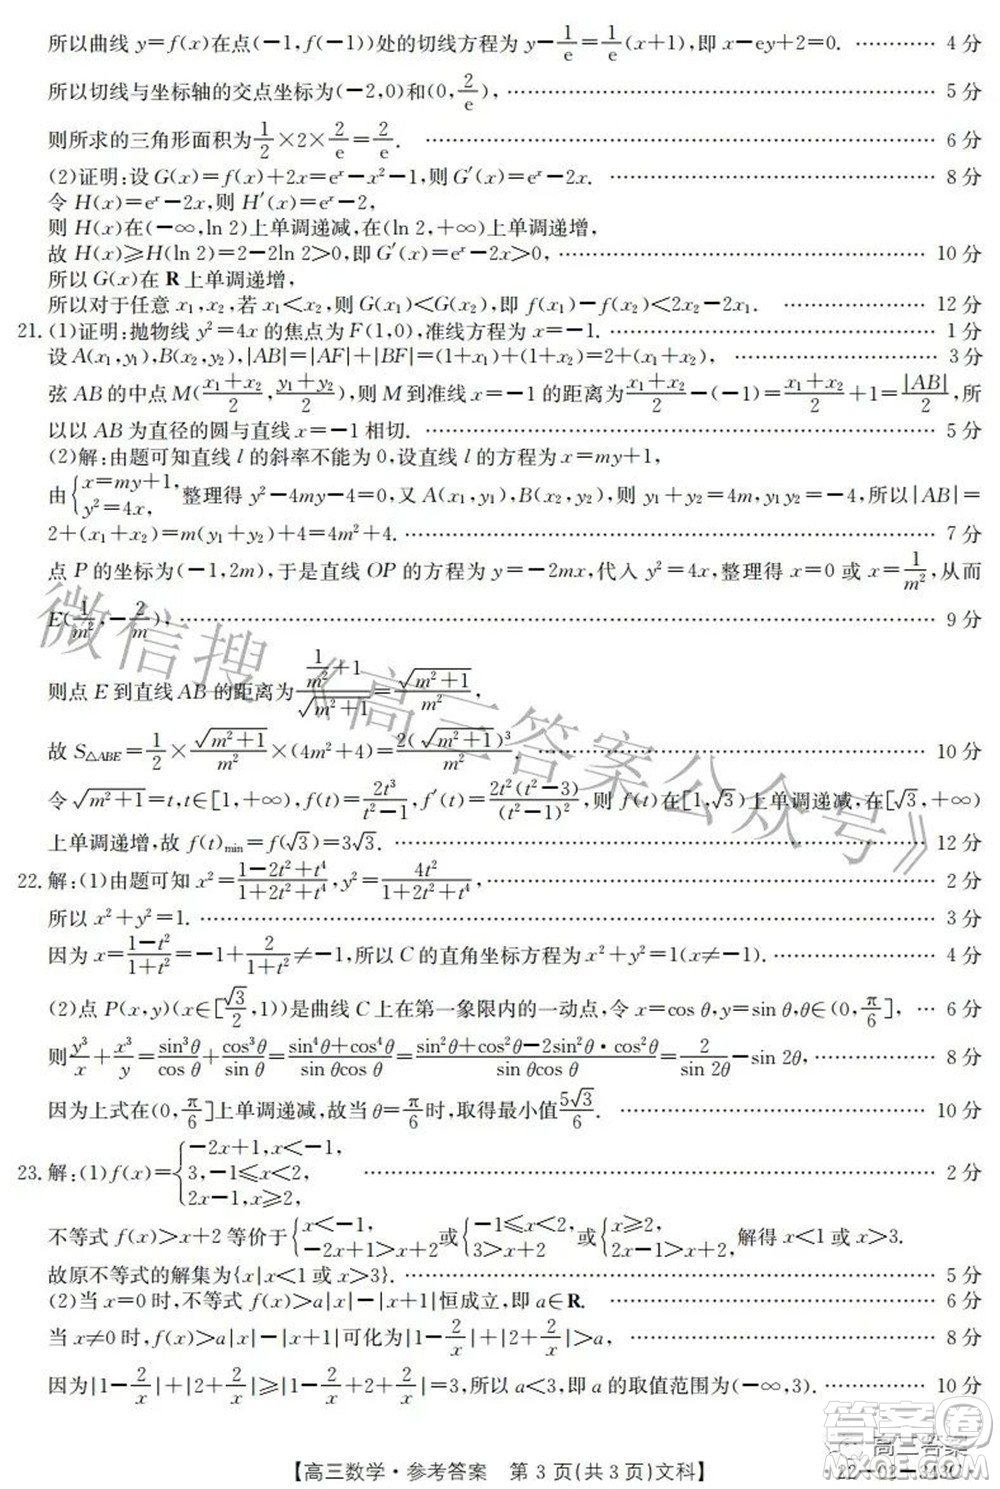 所以曲线 y=f(x)在点(-1,f(-1))处的切线方程为 y-1/e=1/e(x+1),即 x-ey+2=0. ………… 4 分
所以切线与坐标轴的交点坐标为(-2,0)和(0,2/e), ………… 5 分
则所求的三角形面积为1/2×2×2/e=2/e. ………… 6 分
(2)证明:设 G(x)=f(x)+2x=e^x-x^2-1,则 G′(x)=e^x-2x. ………… 8 分
令 H(x)=e^x-2x,则 H′(x)=e^x-2,
则 H(x)在(-∞,ln 2)上单调递减,在(ln 2,+∞)上单调递增,
故 H(x)≥H(ln 2)=2-2ln 2>0,即 G′(x)=e^x-2x>0, ………… 10 分
所以 G(x)在 R 上单调递增,
所以对于任意 x₁,x₂,若 x₁<x₂,则 G(x₁)<G(x₂),即 f(x₁)-f(x₂)<2x₂-2x₁. ………… 12 分
21.(1)证明:抛物线 y²=4x 的焦点为 F(1,0),准线方程为 x=-1. ………… 1 分
设 A(x₁,y₁),B(x₂,y₂),|AB|=|AF|+|BF|=(1+x₁)+(1+x₂)=2+(x₁+x₂), ………… 3 分
弦 AB 的中点 M((x₁+x₂)/2,(y₁+y₂)/2),则 M 到准线 x=-1 的距离为(x₁+x₂)/2-(-1)=(x₁+x₂)/2+1=|AB|/2,所
以以 AB 为直径的圆与直线 x=-1 相切. ………… 5 分
(2)解:由题可知直线 l 的斜率不能为 0,设直线 l 的方程为 x=my+1,
由{x=my+1, y²=4x, 整理得 y²-4my-4=0,又 A(x₁,y₁),B(x₂,y₂),则 y₁+y₂=4m,y₁y₂=-4,所以|AB|=
2+(x₁+x₂)=m(y₁+y₂)+4=4m²+4. ………… 7 分
点 P 的坐标为(-1,2m),于是直线 OP 的方程为 y=-2mx,代入 y²=4x,整理得 x=0 或 x=1/m²,从而
E(1/m²,-2/m), ………… 9 分
则点 E 到直线 AB 的距离为(1/m²+1)/√(m²+1)=√(m²+1)/m²,
故 S△ABE=1/2×√(m²+1)/m²×(4m²+4)=2(√(m²+1))³/m². ………… 10 分
令√(m²+1)=t,t∈[1,+∞),f(t)=2t³/(t²-1),f′(t)=2t²(t²-3)/(t²-1)²,则 f(t)在[1,√3)上单调递减,在[√3,+∞)
上单调递增,故 f(t)min=f(√3)=3√3. ………… 12 分
22.解:(1)由题可知 x²=(1-2t²+t⁴)/(1+2t²+t⁴),y²=4t²/(1+2t²+t⁴), ………… 2 分
所以 x²+y²=1. ………… 3 分
因为 x=(1-t²)/(1+t²)=-1+2/(1+t²)≠-1,所以 C 的直角坐标方程为 x²+y²=1(x≠-1). ………… 4 分
(2)点 P(x,y)(x∈[√3/2,1))是曲线 C 上在第一象限内的一动点,令 x=cos θ,y=sin θ,θ∈(0,π/6], … 6 分
则y³/x+x³/y=sin³θ/cos θ+cos³θ/sin θ=(sin⁴θ+cos⁴θ)/(sin θcos θ)=(sin²θ+cos²θ-2sin²θ·cos²θ)/(sin θcos θ)=2/sin 2θ-sin 2θ, ………… 8 分
因为上式在(0,π/6]上单调递减,故当 θ=π/6时,取得最小值5√3/6. ………… 10 分
23.解:(1)f(x)={-2x+1,x<-1, 3,-1≤x<2, 2x-1,x≥2, ………… 2 分
不等式 f(x)>x+2 等价于{x<-1, -2x+1>x+2 或{-1≤x<2, 3>x+2 或{x≥2, 2x-1>x+2, 解得 x<1 或 x>3.
故原不等式的解集为{x|x<1 或 x>3}. ………… 5 分
(2)当 x=0 时,不等式 f(x)>a|x|-|x+1|恒成立,即 a∈R. ………… 6 分
当 x≠0 时,f(x)>a|x|-|x+1|可化为|1-2/x|+|2+2/x|>a, ………… 8 分
因为|1-2/x|+|2+2/x|≥|1-2/x+2+2/x|=3,所以 a<3,即 a 的取值范围为(-∞,3). ………… 10 分
【高三数学·参考答案 第 3 页(共 3 页)文科】
22-02-343C
微信搜《高三答案公众号》
答案卷
高三答案